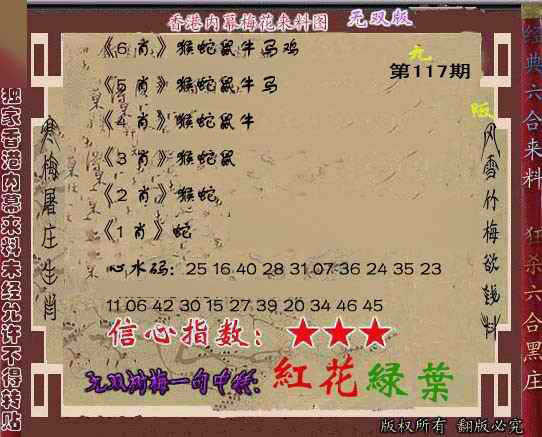 香港内幕梅花来料图 无双版
第117期
《6肖》猴蛇鼠牛马鸡
《5肖》猴蛇鼠牛马
《4肖》猴蛇鼠牛
《3肖》猴蛇鼠
《2肖》猴蛇
《1肖》蛇
心水码：25 16 40 28 31 07 36 24 35 23
11 06 42 30 15 27 39 20 34 46 45
信心指数：★★★
紅花綠葉
独家香港内幕来料未经允许不得转贴
寒梅屠庄生肖
风雪竹梅欲钱料
经典六合来料
狂杀六合黑庄
版权所有 翻版必究